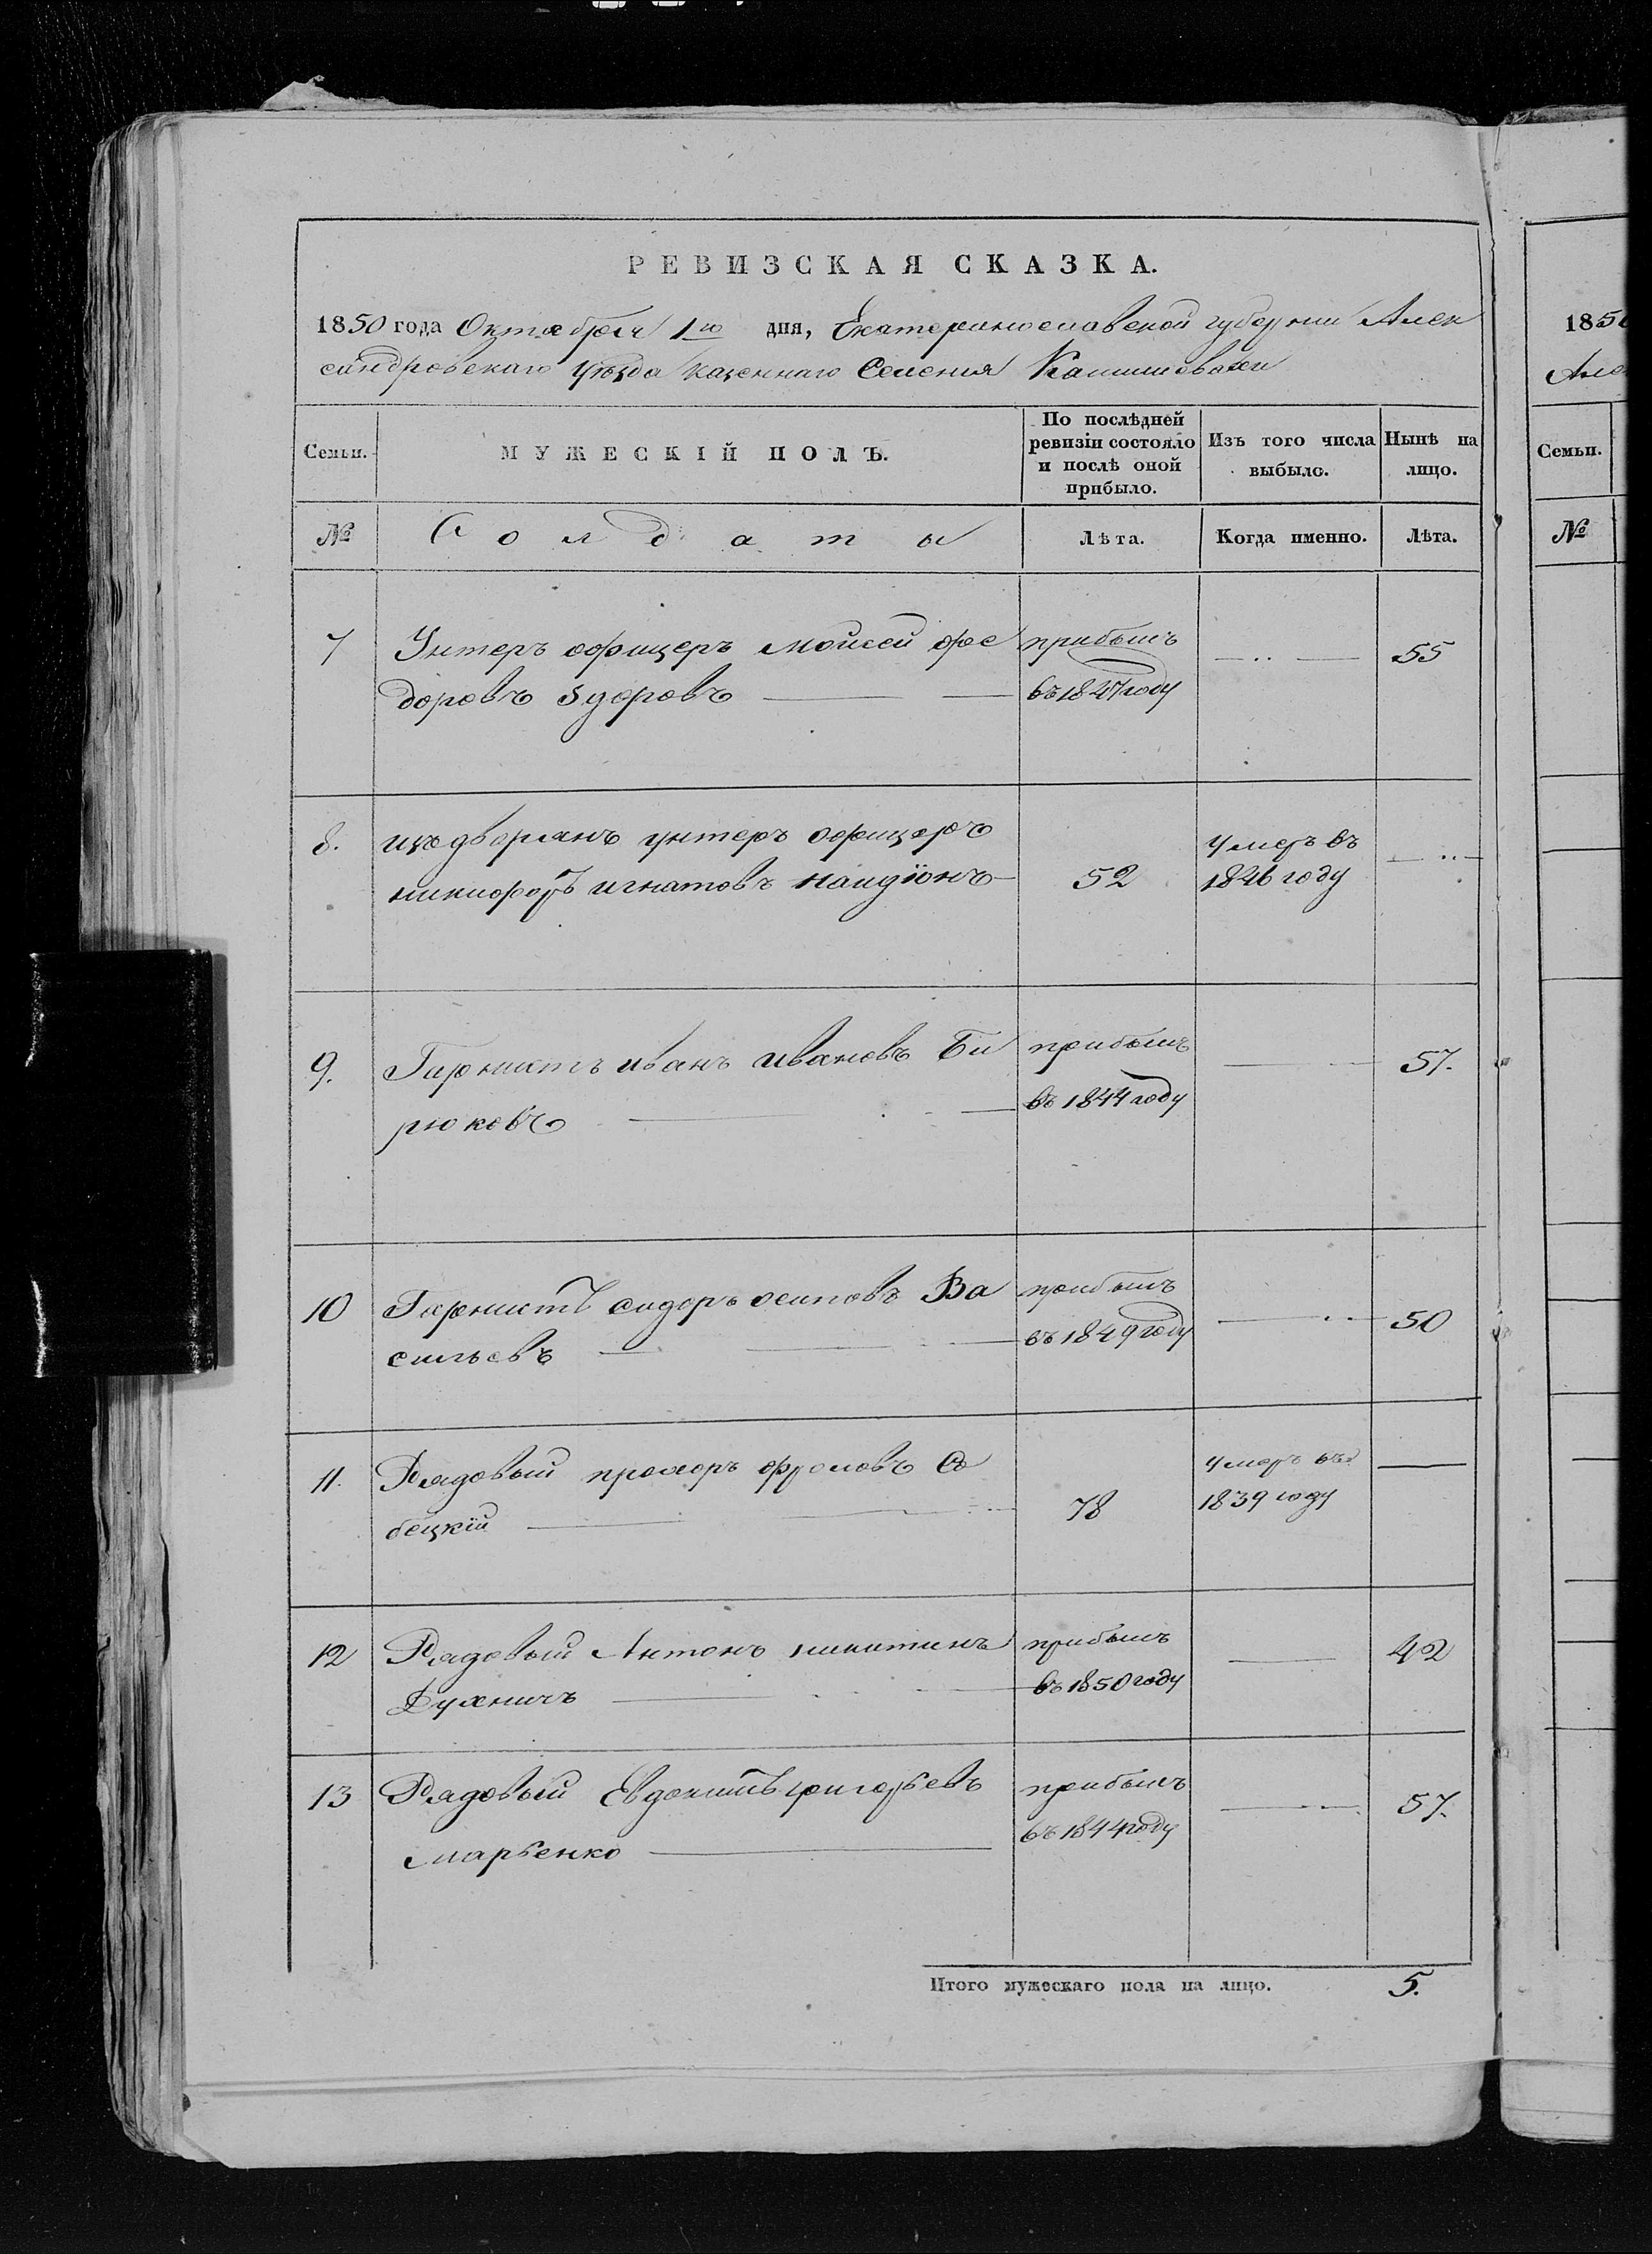 РЕВИЗСКАЯ СКАЗКА.
1850 года Октября 1го дня, Екатеринославской губернии Алек
сандровскаго уѣзда казеннаго Селения Камышевахи
Семьи.
МУЖЕСКІЙ ПОЛЪ.
По послѣдней
ревизіи состояло
и послѣ оной
прибыло.
Изъ того числа
выбыло.
Нынѣ на
лицо.
№
Солдаты
Лѣта.
Когда именно.
Лѣта.
7
Унтеръ офицеръ Моисей Фе
доровъ
прибылъ
въ 1847 году
55
8.
изъ дворянъ унтеръ офицеръ
никифоръ игнатовъ
52
умеръ въ
1846 году
9.
Гарнистъ иванъ ивановъ Би
рюковъ
прибылъ
въ 1844 году
57.
10
Гарнистъ сидоръ осиповъ Ва
сильевъ
прибылъ
въ 1849 году
50
11.
Рядовый прохоръ фроловъ Со
бецкій
78
умеръ въ
1839 году
12
Рядовый Антонъ никитинъ
Духничъ
прибылъ
въ 1850 году
42
13
Рядовый Евдокимъ григорьевъ
Марьенко
прибылъ
въ 1844 году
57.
Итого мужескаго пола на лицо.
5.
185
Але
Семьи.
№